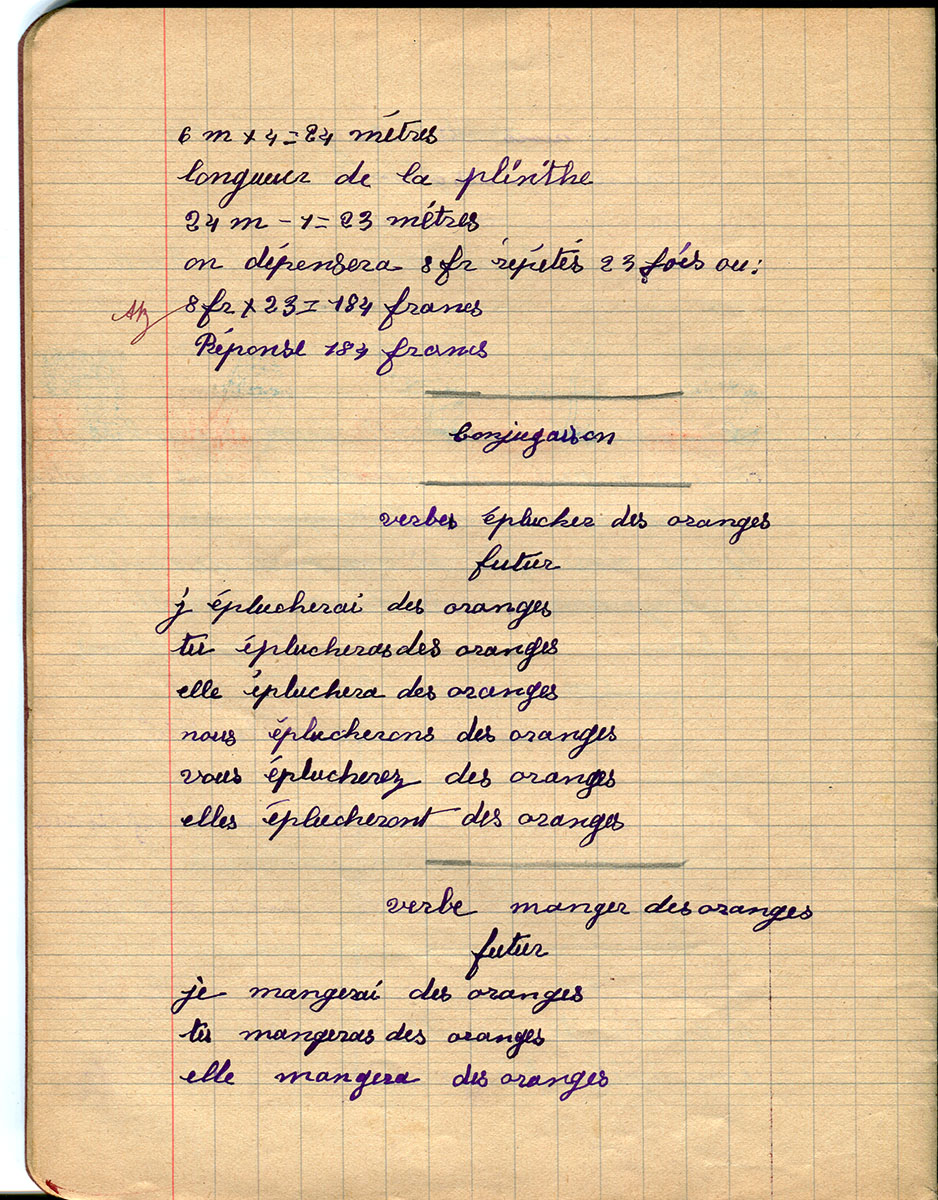 6 m × 4 = 24 mètres
longueur de la plinthe
24 m - 1 = 23 mètres
on dépensera 8 fr répétés 23 fois ou:
8 fr × 23 = 184 francs
Réponse 184 francs
conjugaison
verbes éplucher des oranges
futur
j éplucherai des oranges
tu éplucheras des oranges
elle épluchera des oranges
nous éplucherons des oranges
vous éplucherez des oranges
elles éplucheront des oranges
verbe manger des oranges
futur
je mangerai des oranges
tu mangeras des oranges
elle mangera des oranges